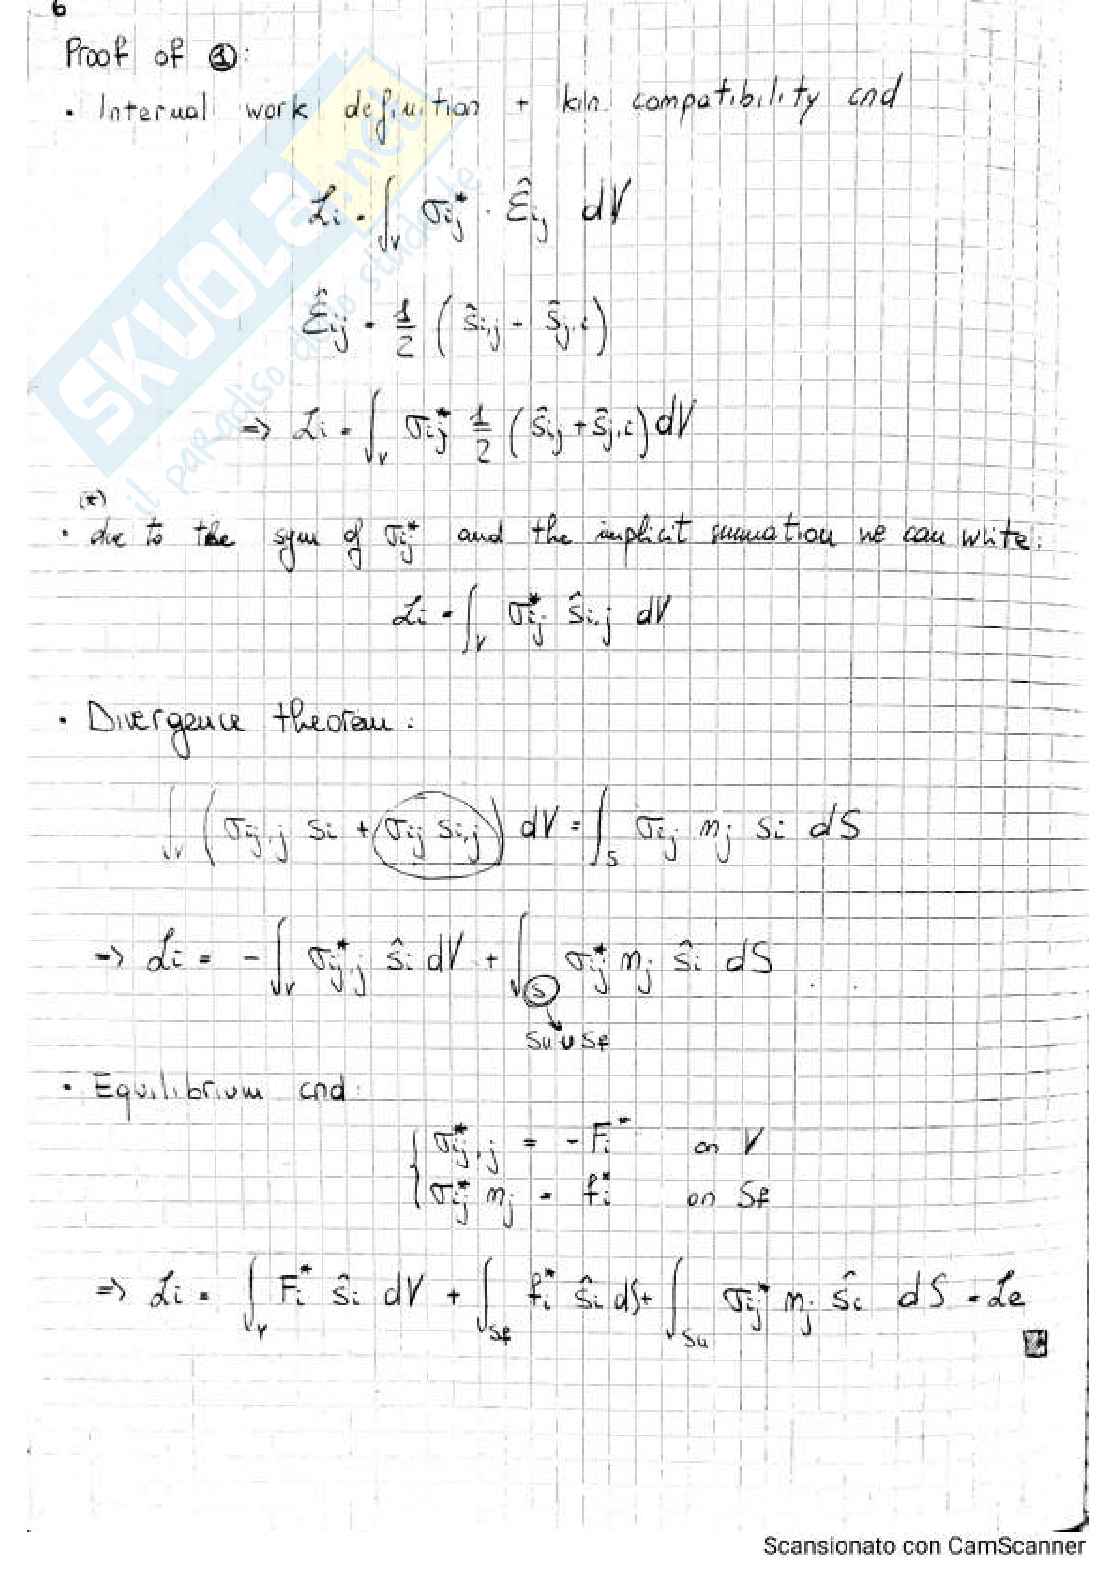 6
Proof of ①:
• Internal work definition + kin. compatibility cnd
Li = ∫_V σij* · ε̂ij dV
ε̂ij = 1/2 ( ŝi,j - ŝj,i )
=> Li = ∫_V σij* 1/2 ( ŝi,j + ŝj,i ) dV
(*)
• due to the sym of σij* and the implicit summation we can write:
Li = ∫_V σij* ŝi,j dV
• Divergence theorem:
∫_V ( σij,j si + σij si,j ) dV = ∫_S σij nj si dS
=> Li = - ∫_V σij,j* ŝi dV + ∫_S σij* nj ŝi dS
Su ∪ Sf
• Equilibrium cnd:
{ σij,j* = - Fi* on V
σij* nj = fi* on Sf
=> Li = ∫_V Fi* ŝi dV + ∫_Sf fi* ŝi dS + ∫_Su σij* nj ŝi dS = Le
SKUOLA.net
il paradiso dello studente
Scansionato con CamScanner